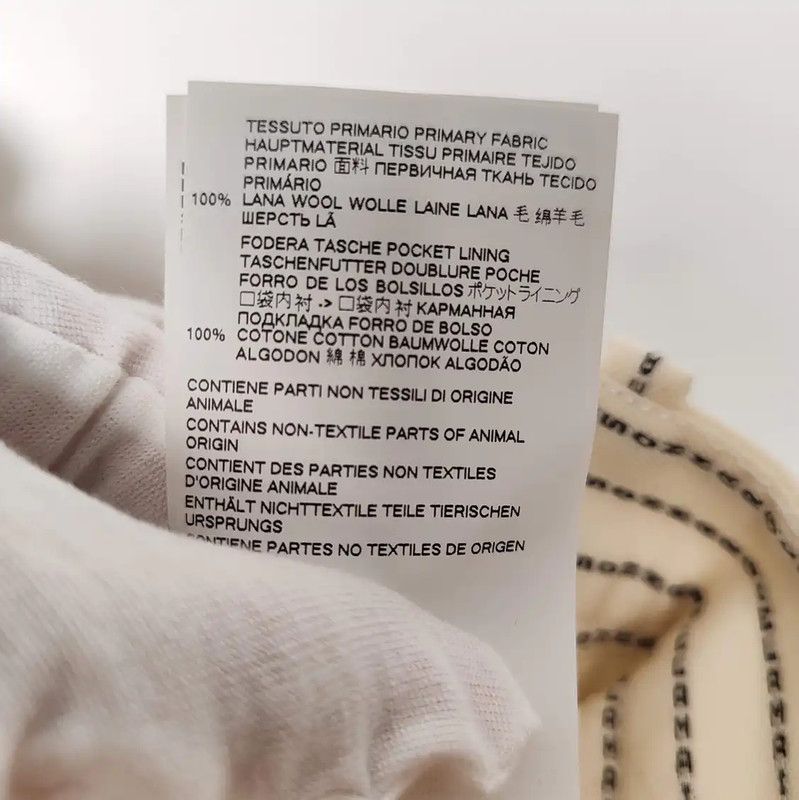 TESSUTO PRIMARIO PRIMARY FABRIC
HAUPTMATERIAL TISSU PRIMAIRE TEJIDO
PRIMARIO 面料 ПЕРВИЧНАЯ ТКАНЬ TECIDO
PRIMÁRIO
100% LANA WOOL WOLLE LAINE LANA 毛 绵羊毛
ШЕРСТЬ LÃ
FODERA TASCHE POCKET LINING
TASCHENFUTTER DOUBLURE POCHE
FORRO DE LOS BOLSILLOS ポケットライニング
口袋内衬 -> 口袋内衬 КАРМАННАЯ
ПОДКЛАДКА FORRO DE BOLSO
100% COTONE COTTON BAUMWOLLE COTON
ALGODON 綿 棉 ХЛОПОК ALGODÃO
CONTIENE PARTI NON TESSILI DI ORIGINE
ANIMALE
CONTAINS NON-TEXTILE PARTS OF ANIMAL
ORIGIN
CONTIENT DES PARTIES NON TEXTILES
D'ORIGINE ANIMALE
ENTHÄLT NICHTTEXTILE TEILE TIERISCHEN
URSPRUNGS
CONTIENE PARTES NO TEXTILES DE ORIGEN